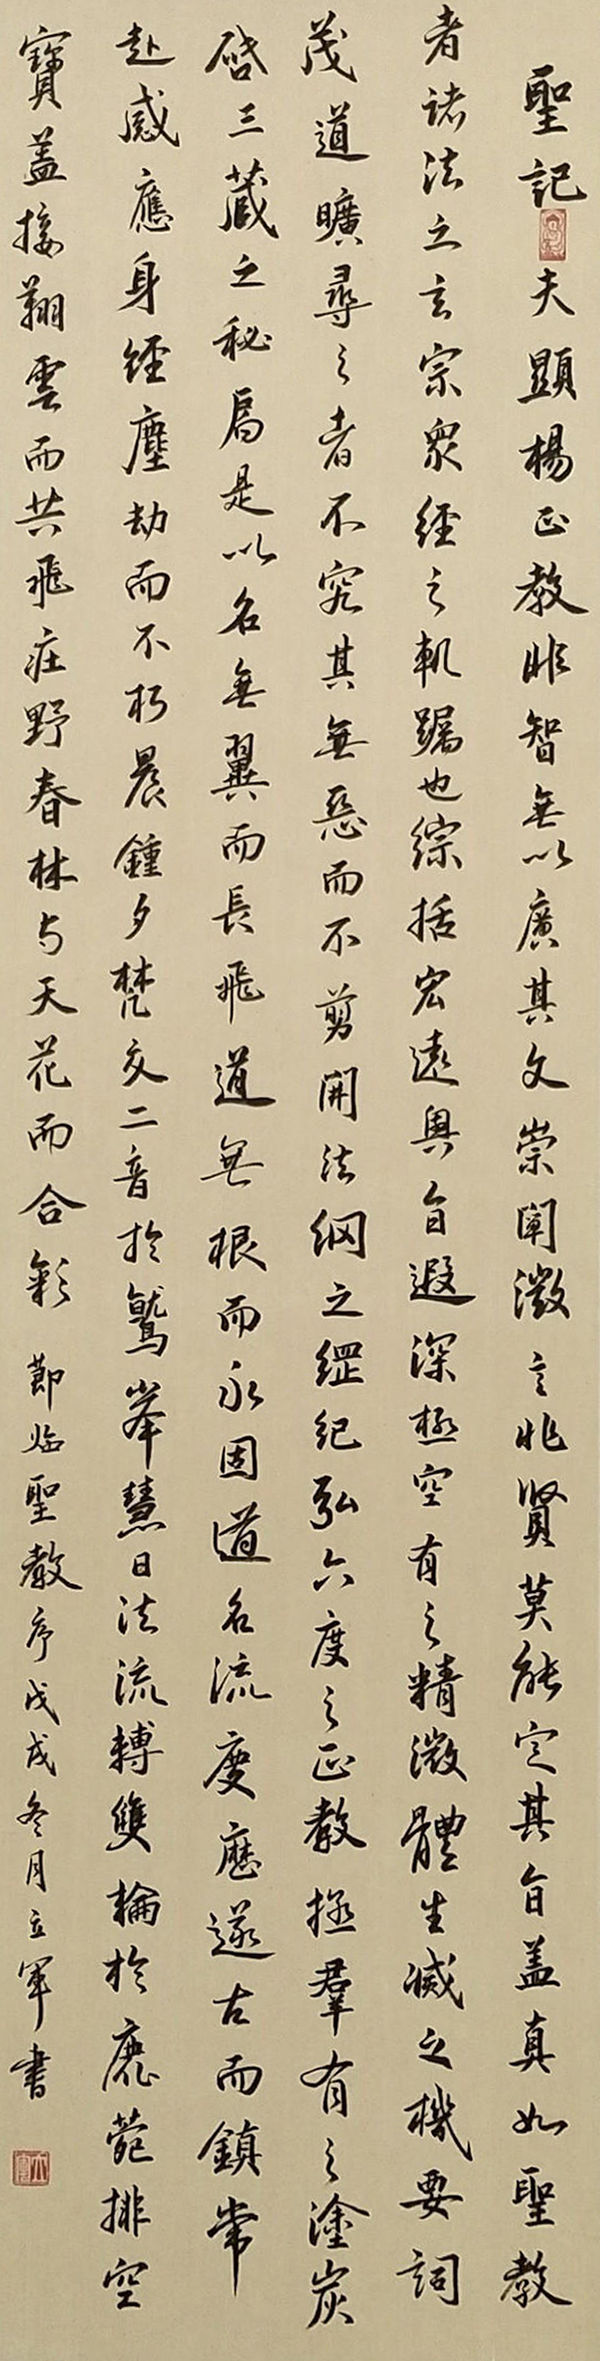 聖記夫顯楊正教非智無以廣其文崇闡微言非賢莫能定其旨盖真如聖教
者諸法之玄宗衆經之軌躅也綜括宏遠奧旨遐深極空有之精微體生滅之機要詞
茂道曠尋之者不究其無惡而不剪開法網之綱紀弘六度之正教拯羣有之塗炭
啓三藏之秘扃是以名無翼而長飛道無根而永固道名流慶歷遂古而鎮常
赴感應身經塵劫而不朽晨鍾夕梵交二音於鷲峯慧日法流轉雙輪於鹿菀排空
寶盖接翔雲而共飛庄野春林与天花而合彩 節臨聖教序戊戌冬月立軍書